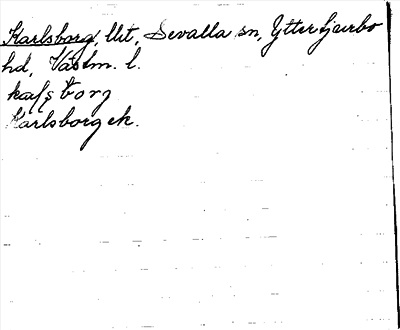 Karlsborg, llit, Sevalla sn, Yttertjurbo
hd, Västm. l.
kaſs borg
Karlsborg ek.